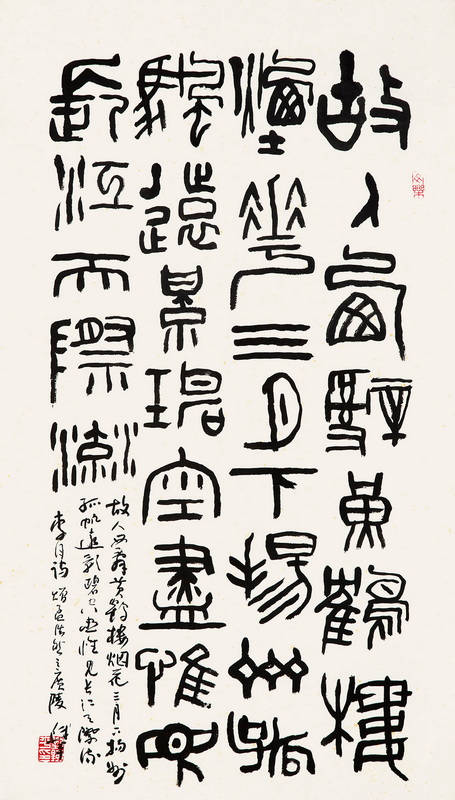 故人西辭黃鶴樓
煙花三月下揚州孤
颿遠景碧空盡惟見
長江天際流
故人西辭黄鶴樓烟花三月下揚州
孤帆遠影碧空盡惟見長江天際流
李白詩贈孟浩然之廣陵